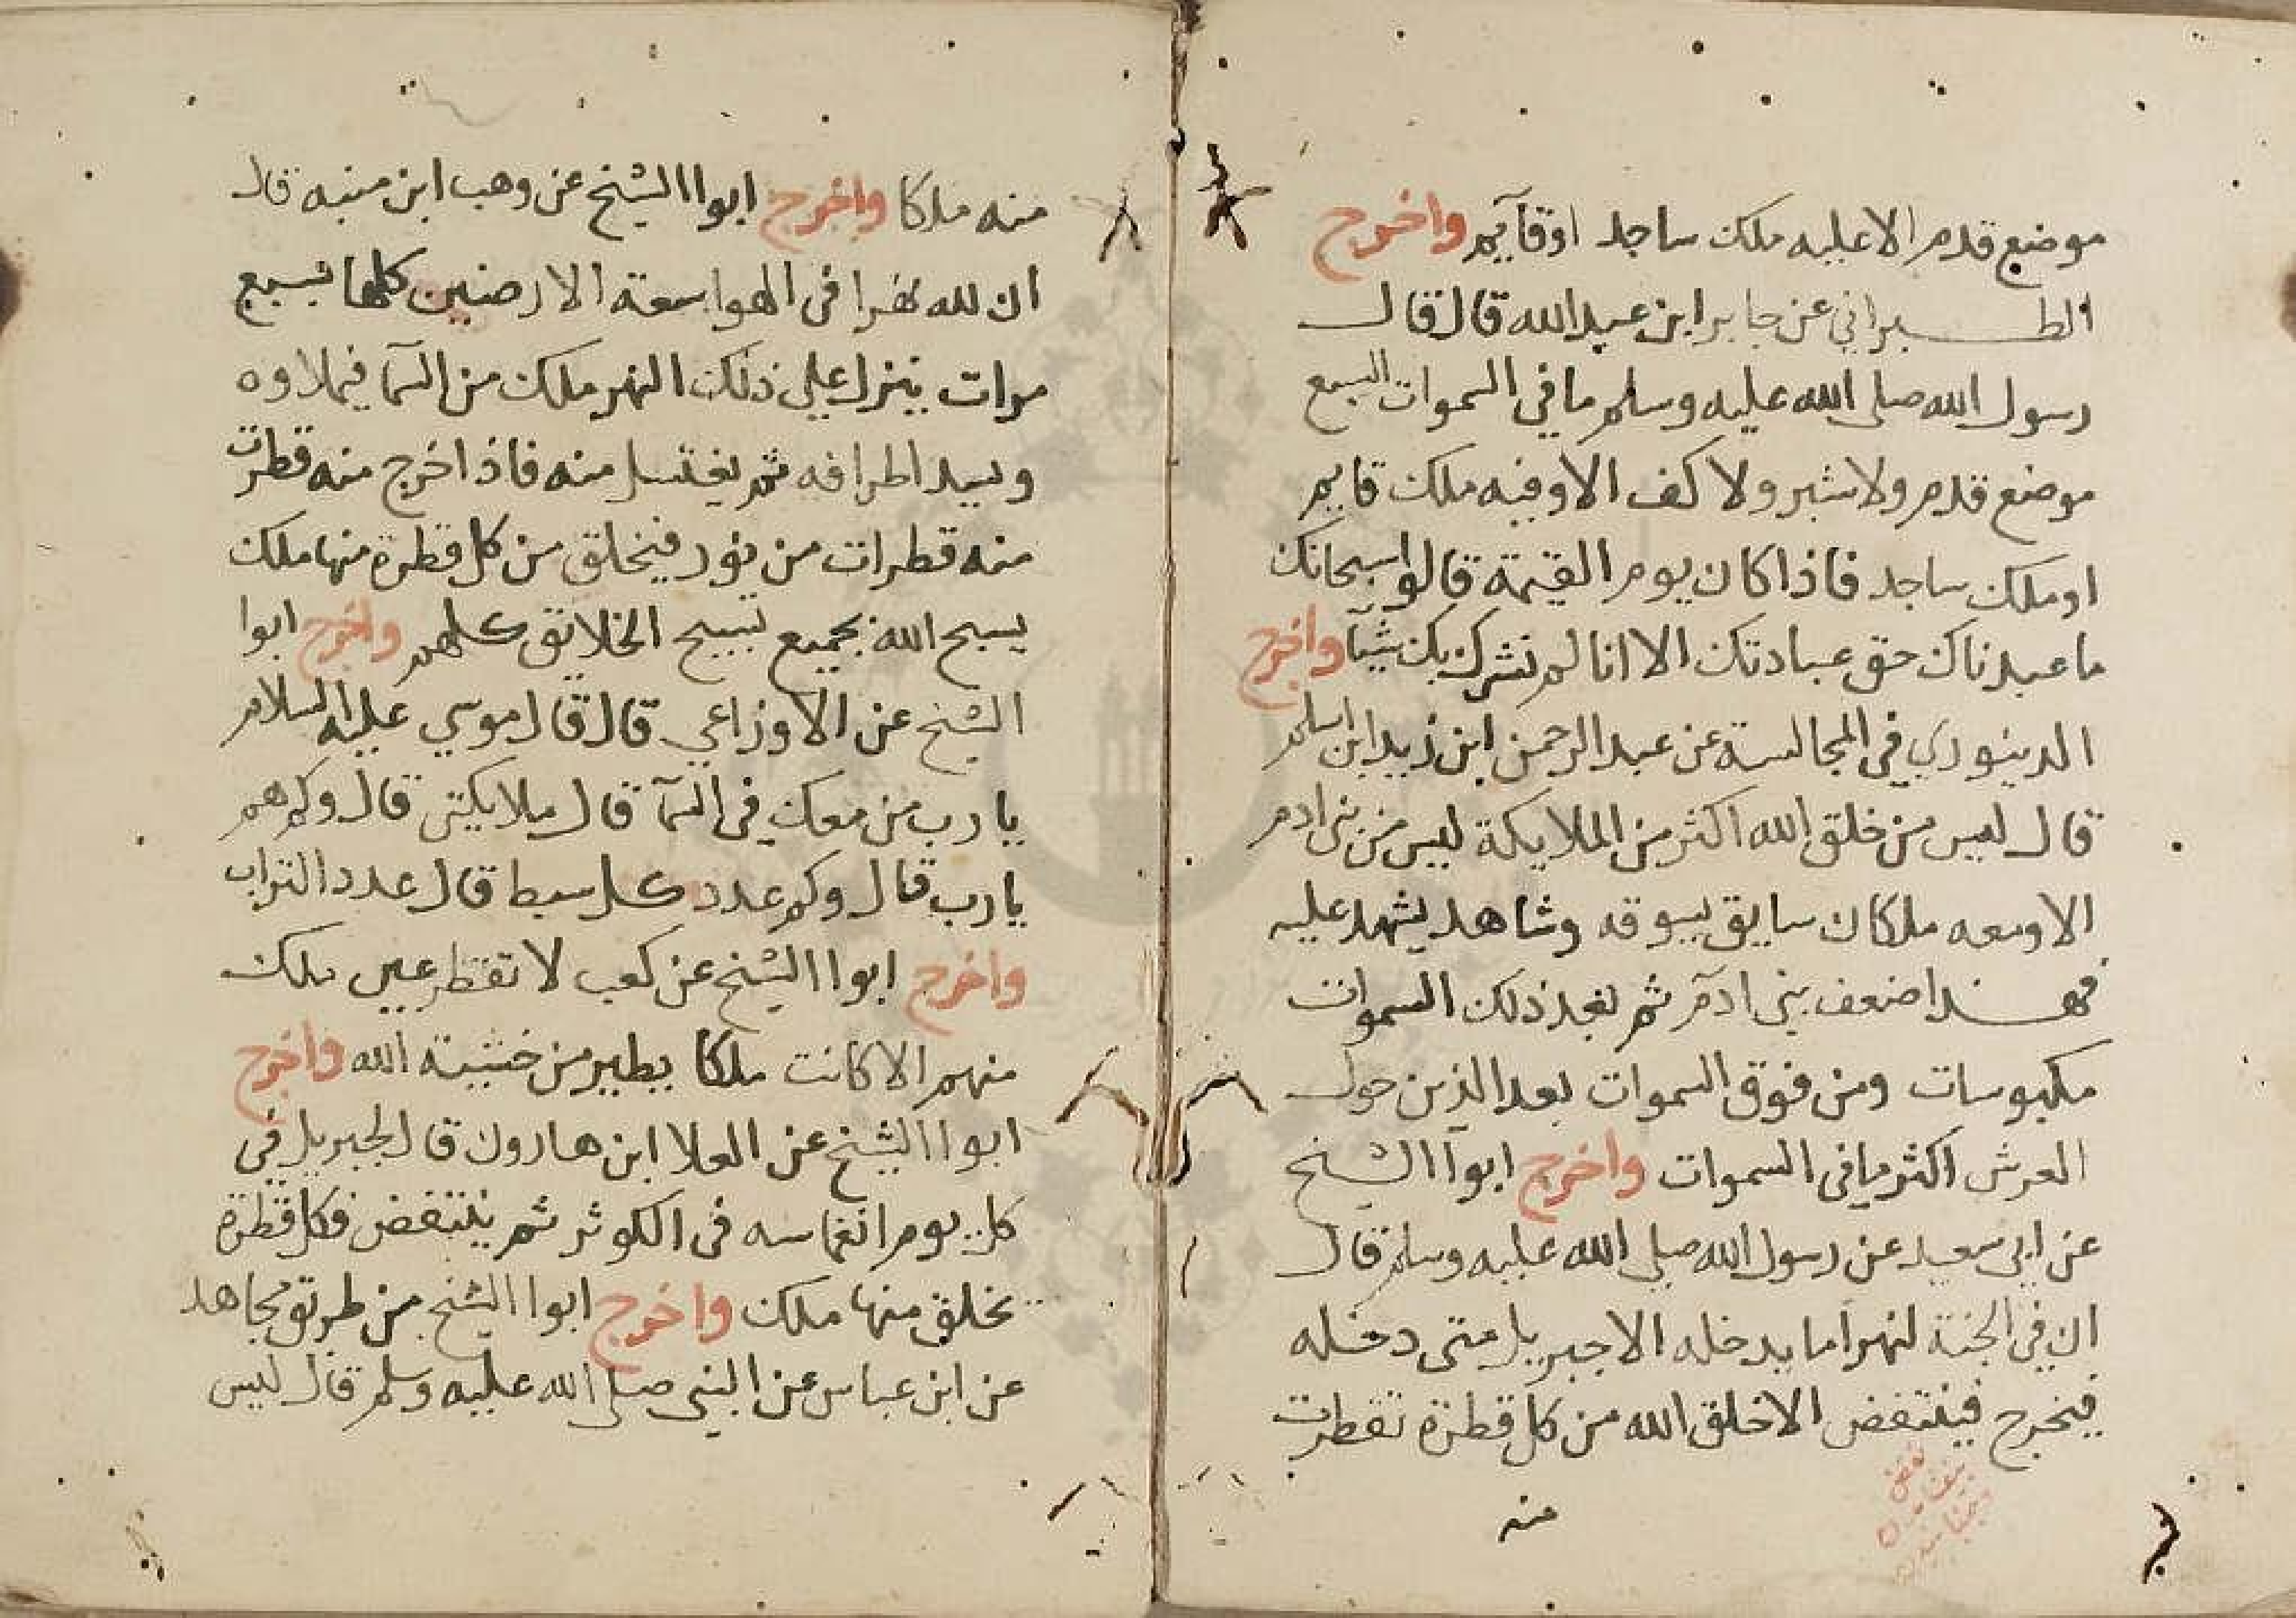 موضع قدم الا عليه ملك ساجد او قآيم واخرج
الطبراني عن جابر ابن عبد الله قال قال
رسول الله صلى الله عليه وسلم ما في السموات السبع
موضع قدم ولا شبر ولا كف الا وفيه ملك قايم
او ملك ساجد فاذا كان يوم القيمة قالوا سبحانك
ما عبدناك حق عبادتك الا انا لم نشرك بك شيآ واخرج
الدينوري في المجالسة عن عبد الرحمن ابن زيد ابن اسلم
قال ليس من خلق الله اكثر من الملايكة ليس من بني ادم
الا ومعه ملكان سايق يسوقه وشاهد يشهد عليه
فهذا ضعف بني ادم ثم بعد ذلك السموات
مكبوسات ومن فوق السموات بعد الذين حول
العرش اكثر ما في السموات واخرج ابوا الشيخ
عن ابي سعيد عن رسول الله صلى الله عليه وسلم قال
ان في الجنة لنهرا ما يدخله الا جبريل متى دخله
فيخرج فينتفض الا خلق الله من كل قطرة تقطرت
منه
منه ملكا واخرج ابوا الشيخ عن وهب ابن منبه قال
ان لله نهرا في الهوا سعة الارضين كلها سبع
مرات ينزل على ذلك النهر ملك من السمآ فيملاوه
ويسد اطرافه ثم يغتسل منه فاذا خرج منه قطرت
منه قطرات من نور فيخلق من كل قطرة منها ملك
يسبح الله بجميع تسبيح الخلائق كلهم واخرج ابوا
الشيخ عن الاوزاعي قال قال موسي عليه السلام
يا رب من معك في السمآ قال ملايكتي قال وكم هم
يا رب قال وكم عدد كل سبط قال عدد التراب
واخرج ابوا الشيخ عن كعب لا تقطر عين ملك
منهم الا كانت ملكا يطير من خشية الله واخرج
ابوا الشيخ عن العلا ابن هارون قال لجبريل في
كل يوم انغماسه في الكوثر ثم ينتفض فكل قطرة
يخلق منها ملك واخرج ابوا الشيخ من طريق مجاهد
عن ابن عباس عن النبي صلى الله عليه وسلم قال ليس